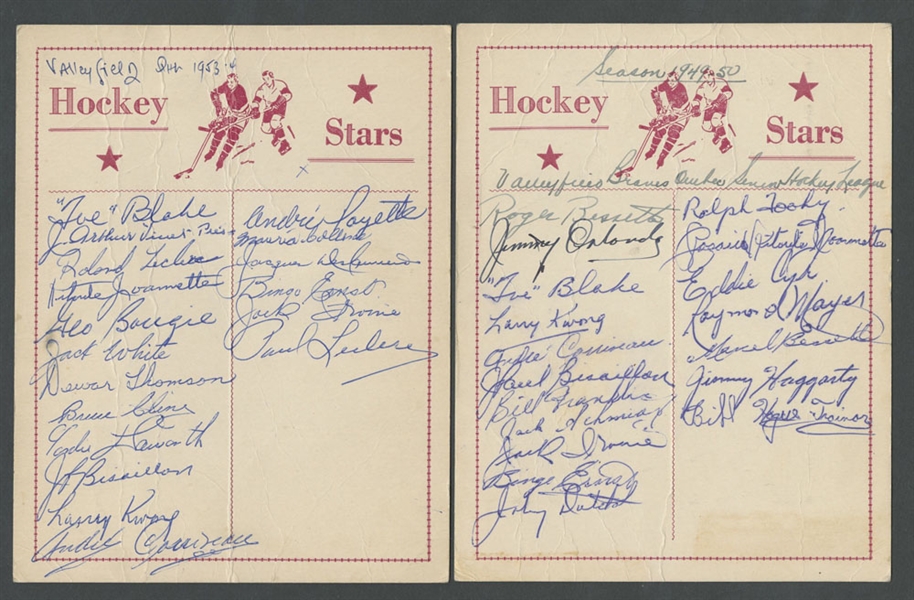 Valleyfield Que 1953-4
Hockey
Stars
"Toe" Blake
J. Arthur
Roland Leclerc
Jovanette
Geo Bougie
Jack White
Dewar Thomson
Bruce Cline
Haworth
J P Bisaillon
Larry Kwong
André Corriveau
André Payette
Jacques
Bingo Ernst
Jack Irvine
Paul Leclerc
Season 1949-50
Hockey
Stars
Valleyfield Braves Quebec Senior Hockey League
Roger Bessette
Jimmy Orlando
"Toe" Blake
Larry Kwong
André Corriveau
Paul Bisaillon
Bill
Jack Schmidt
Jack Irvine
Bingo Ernst
John
Ralph
Rosario Joannette
Eddie
Raymond Mayer
Marcel Bessette
Jimmy Haggarty
Bill Hogue Trainor